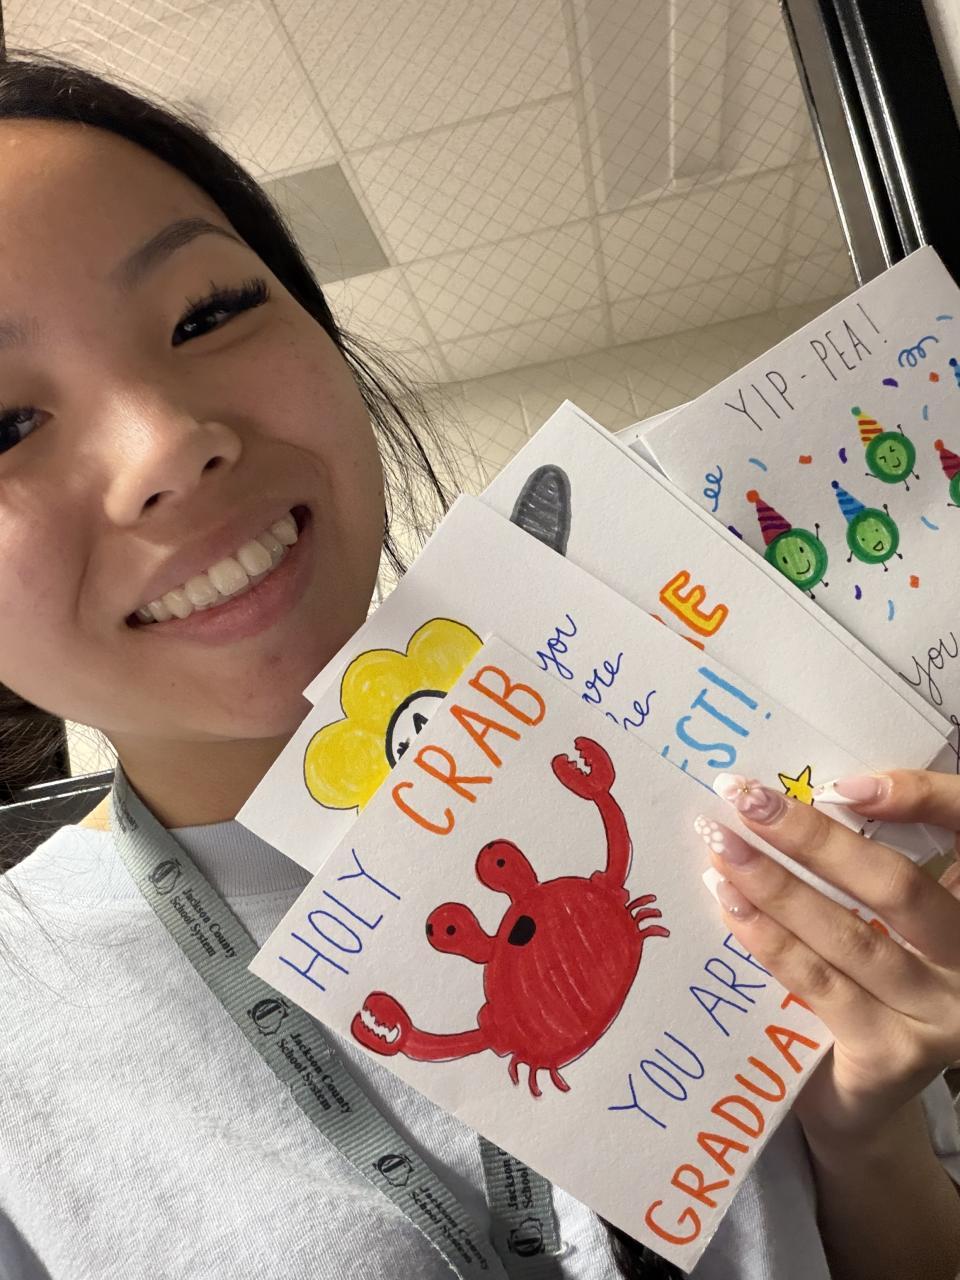 YIP-PEA!
you
you
're
EST!
HOLY
CRAB
YOU ARE
GRADUAT
Jackson County
School System
Jackson County
School System
Jackson County
School System
Jackson
School